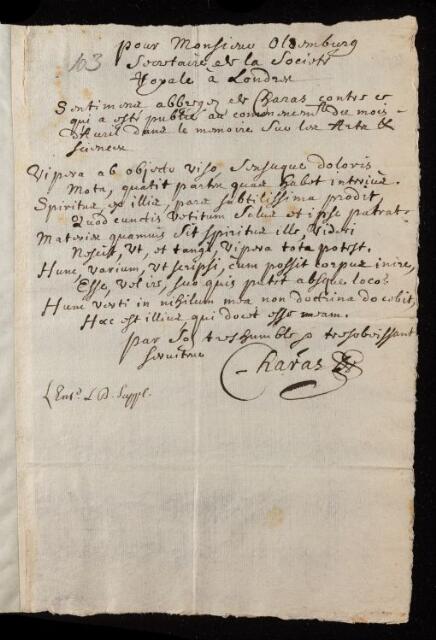 103
pour Monsieur Oldemburg
Secretaire de la Societé
Royale à Londres
Sentimens abbregez de Charas contre ce
qui a esté publié au commencemt. du mois
d'Auril dans le memoire sur les Arts &
Sciences
Vipera ab objecto viso, sensuque doloris
Mota, quatit partes quas habet interius.
Spiritus ex illis, pars subtilissima prodit,
Quod cunctis vetitum solus et ipse patrat.
Materies quamuis sit spiritus ille, videri
Nescit, ut, et tangi, vipera tota potest.
Hunc, varium, ut scripsi, cum possit corpus inire,
Esse, velis, suo quis putet absque loco?
Hunc verti in nihilum mea non doctrina docebit,
Hoc est illius qui docet esse meam.
par son tres humble & tresobeissant
seruiteur
Charas
Entd. L.B. Suppl.